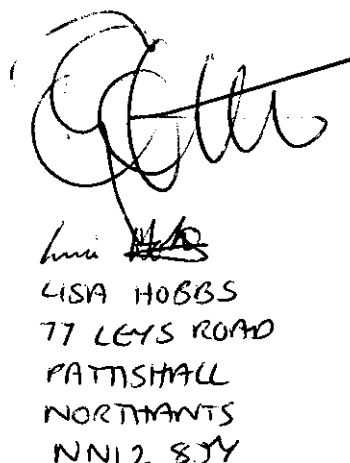 LISA HOBBS
77 LEYS ROAD
PATTISHALL
NORTHANTS
NN12 8JY